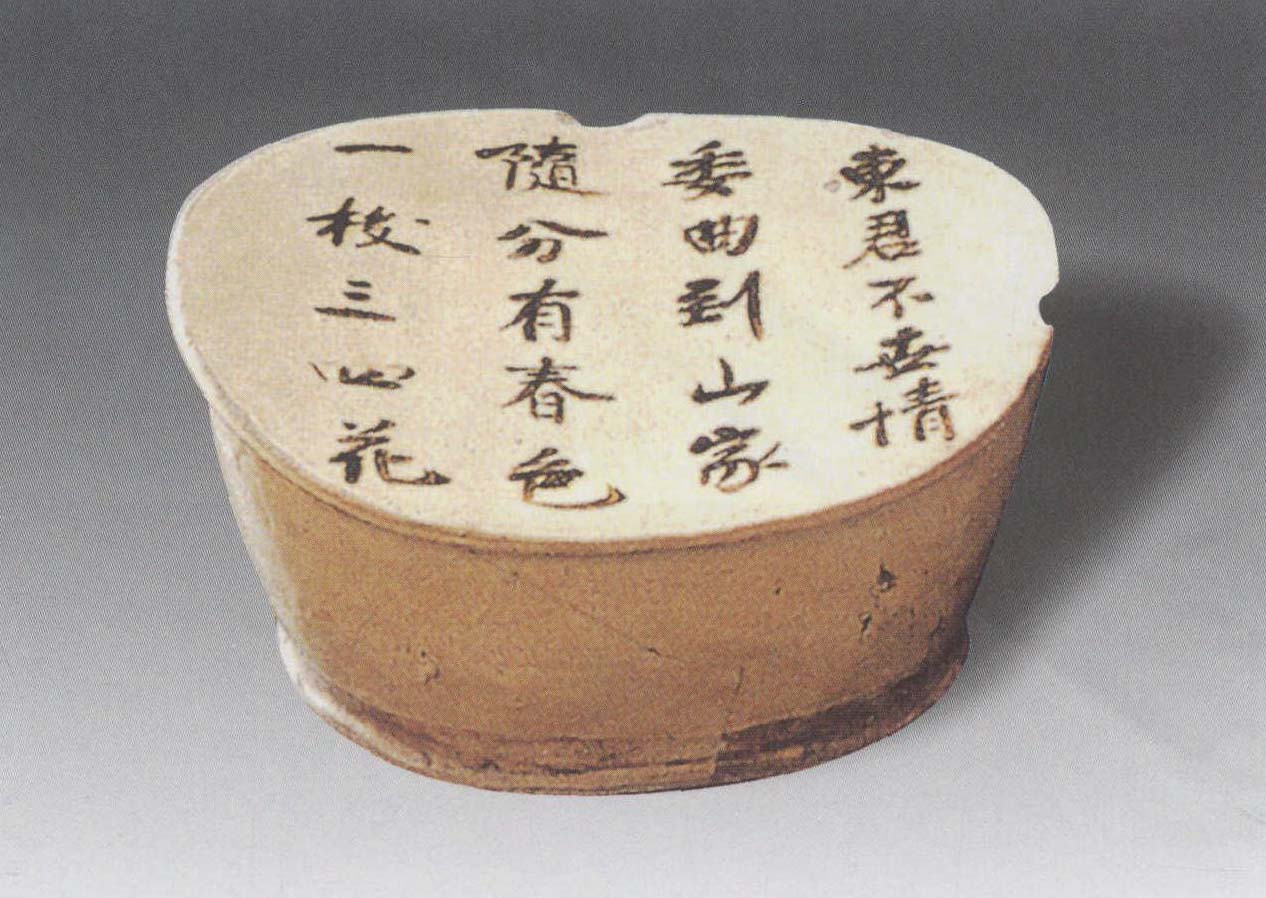 東君不無情
委曲到山家
隨分有春色
一枝三四花